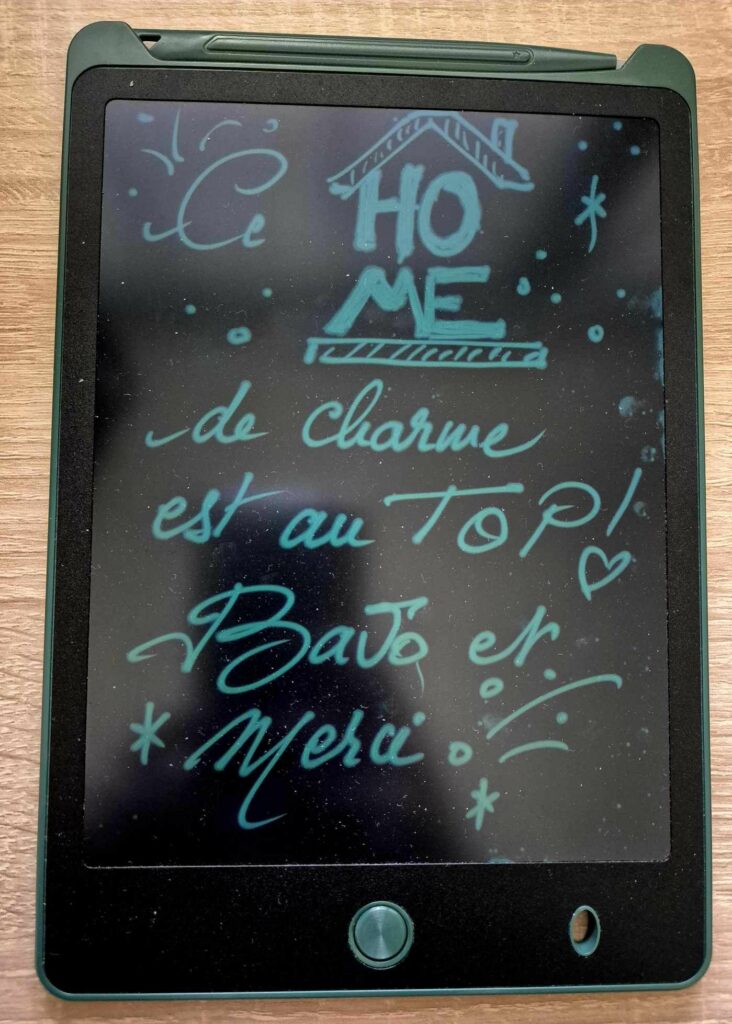 Ce HO
ME
de charme
est au TOP!
Bavo et
Merci.